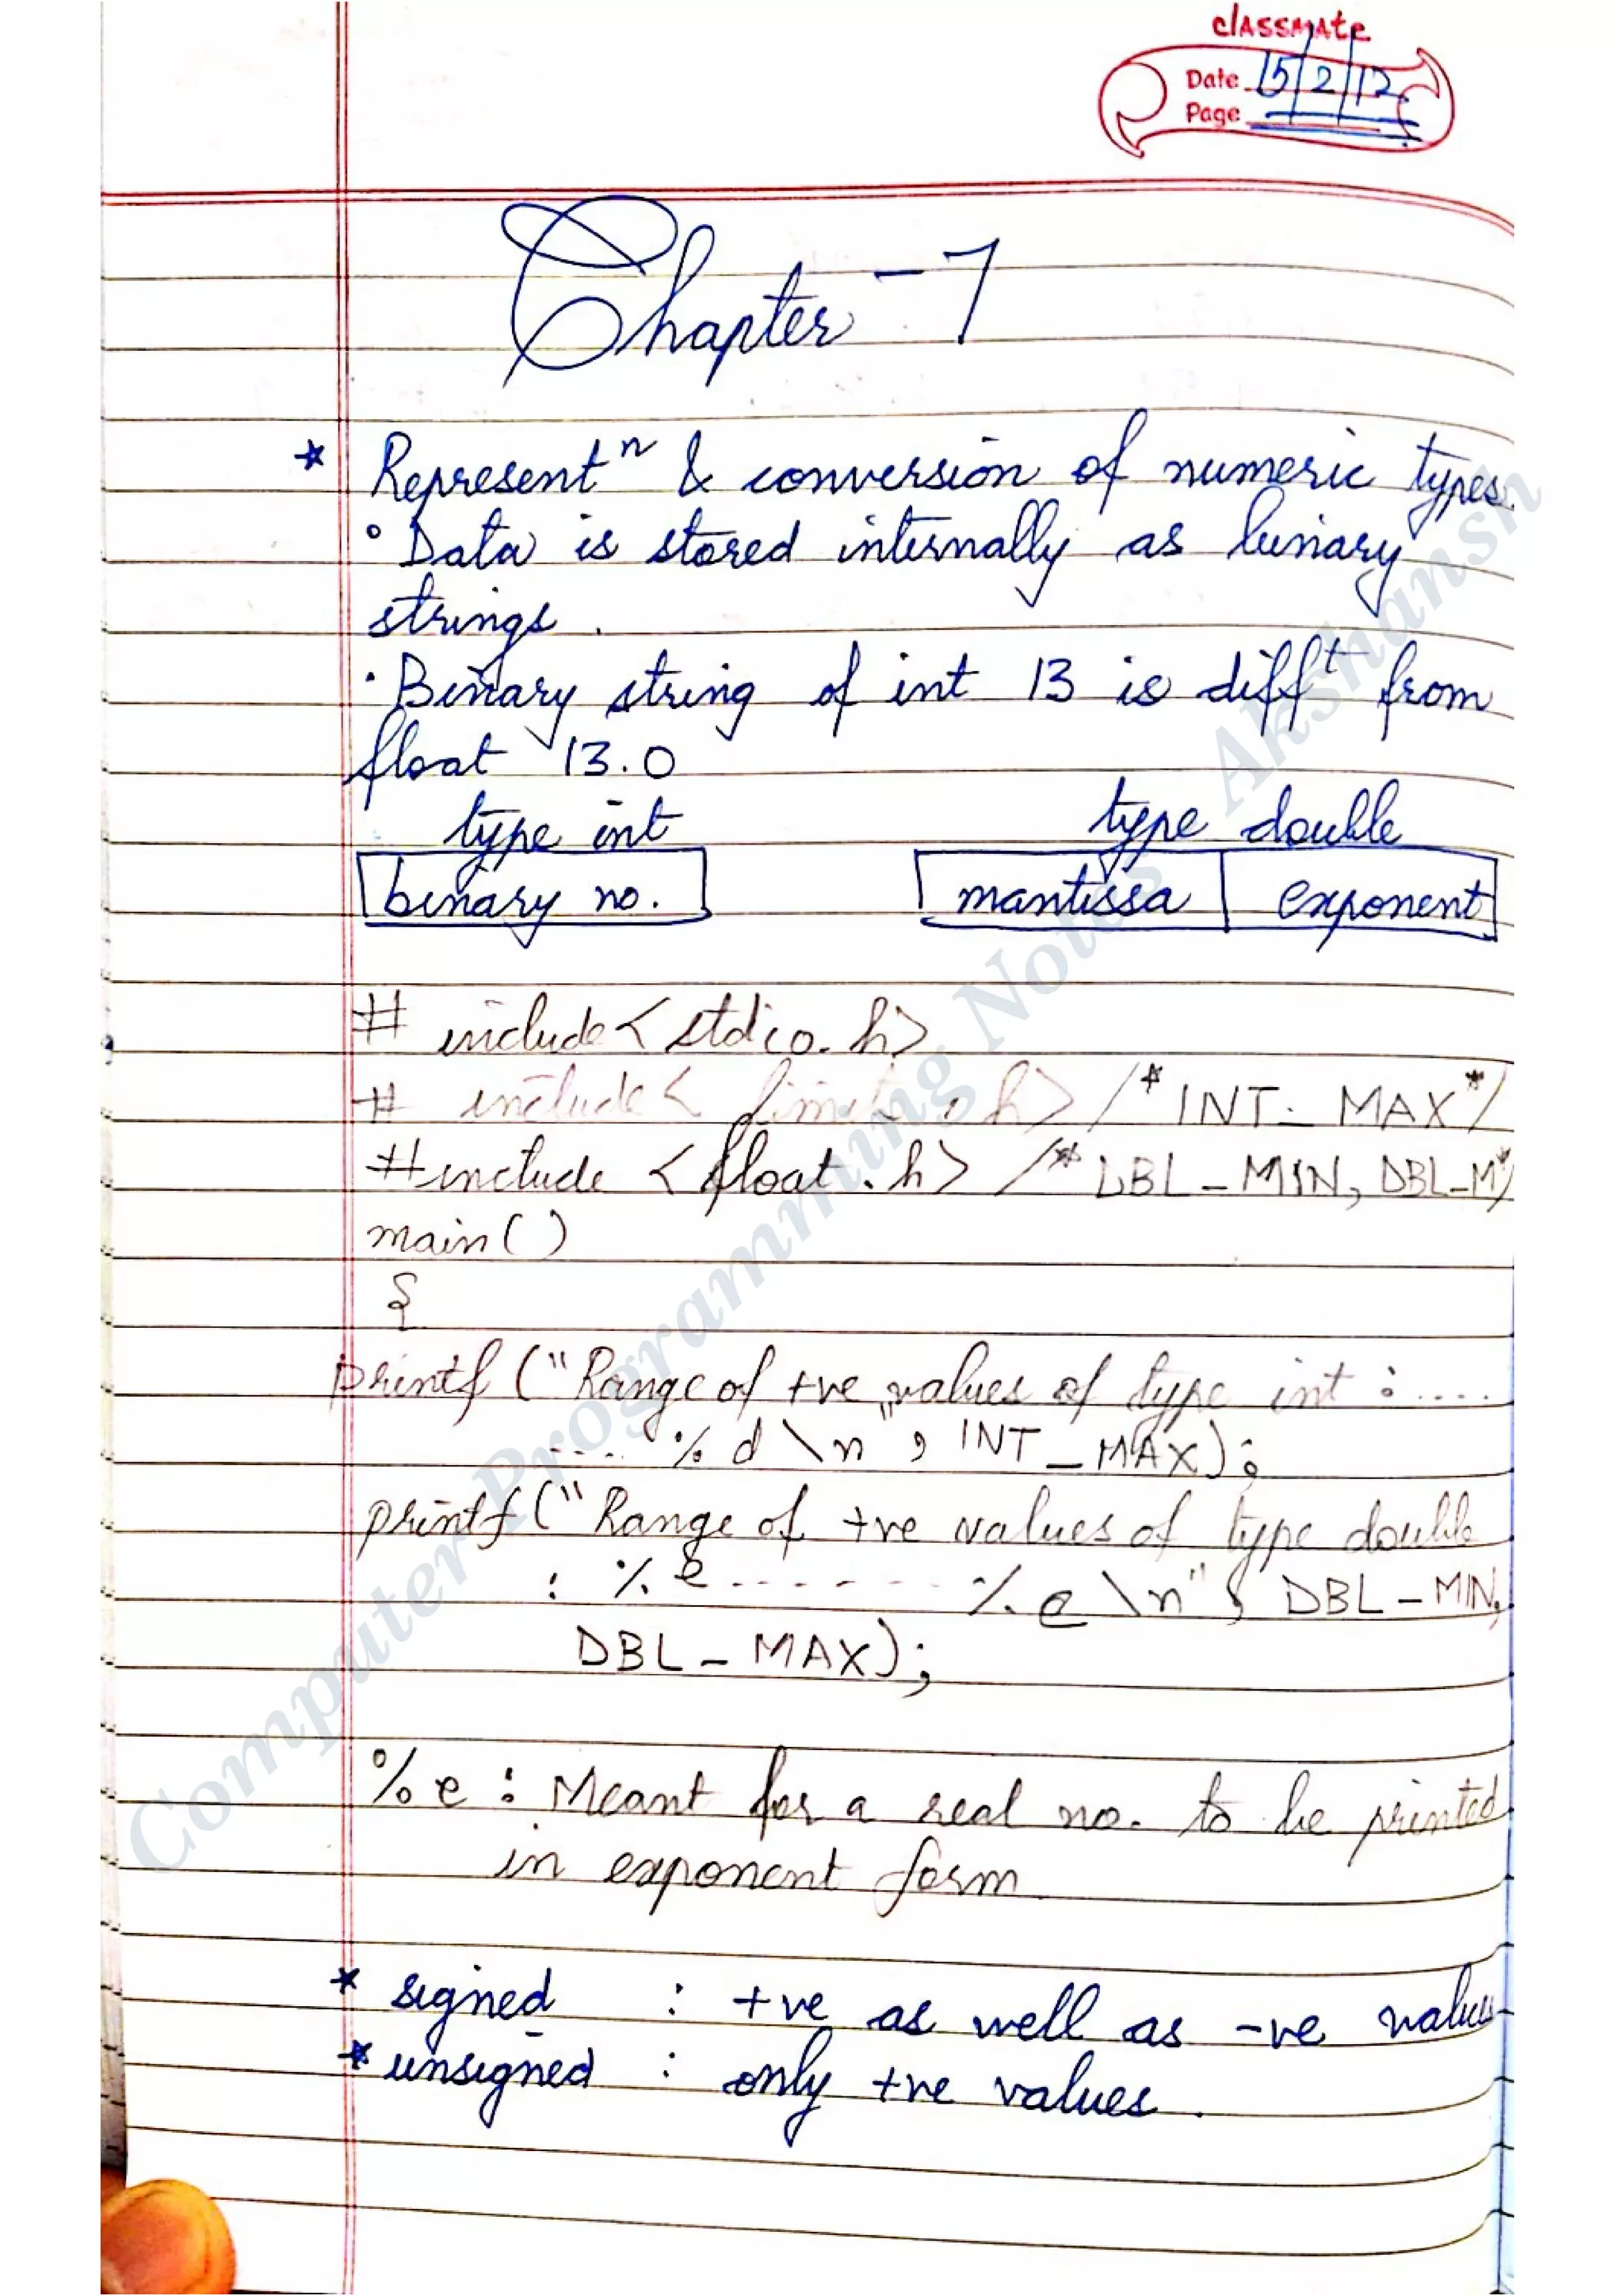 classmate
Date 15/2/12
Page
Chapter - 7
* Representⁿ & conversion of numeric types
° Data is stored internally as binary
strings.
· Binary string of int 13 is diffᵗ from
float 13.0
type int type double
binary no. mantissa exponent
# include <stdio.h>
# include < limits.h> /* INT_MAX*/
#include <float.h> /* DBL_MIN, DBL_M*/
main()
{
printf ("Range of +ve values of type int : ....
.... % d \n", INT_MAX);
printf ("Range of +ve values of type double
: % e ....... % e \n", DBL_MIN,
DBL_MAX);
% e : Meant for a real no. to be printed
in exponent form.
* signed : +ve as well as -ve values
* unsigned : only +ve values.
Computer Programming Notes Akshansh